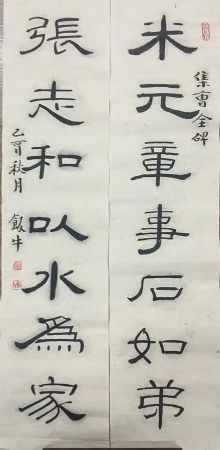 米元章事石如弟
集曹全碑
張志和以水為家
乙酉秋月 飯牛